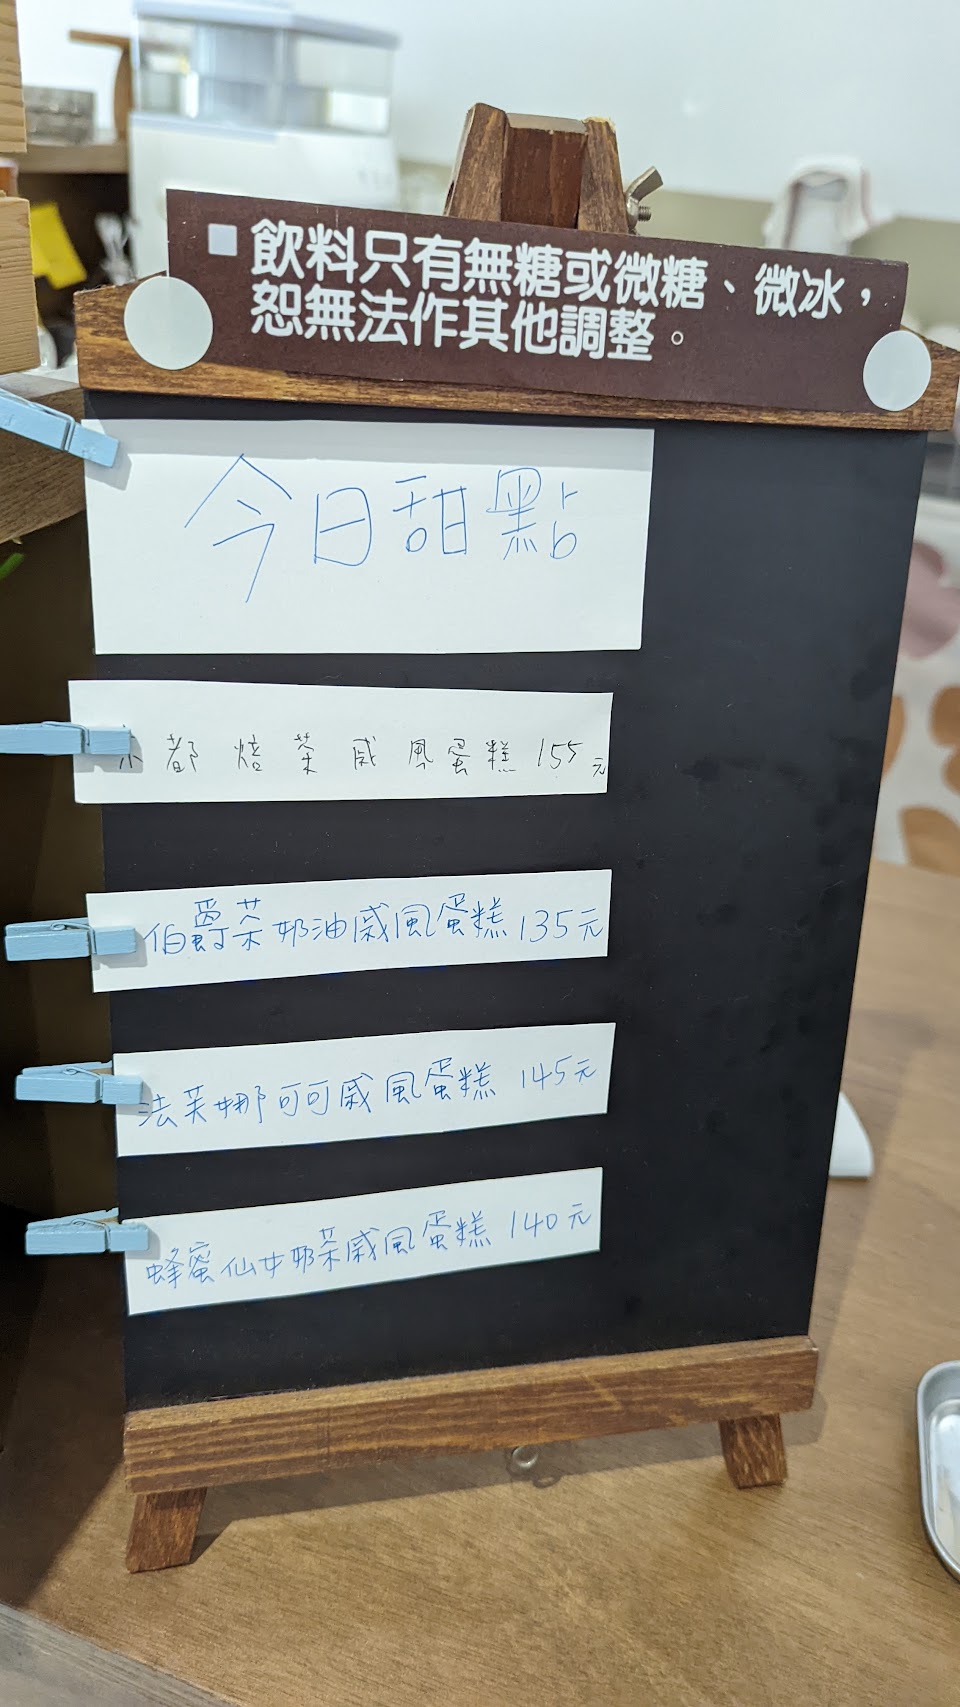 飲料只有無糖或微糖、微冰，
恕無法作其他調整。
今日甜點
都焙茶戚風蛋糕155元
伯爵茶奶油戚風蛋糕135元
法芙娜可可戚風蛋糕 145元
蜂蜜仙女奶茶戚風蛋糕 140元